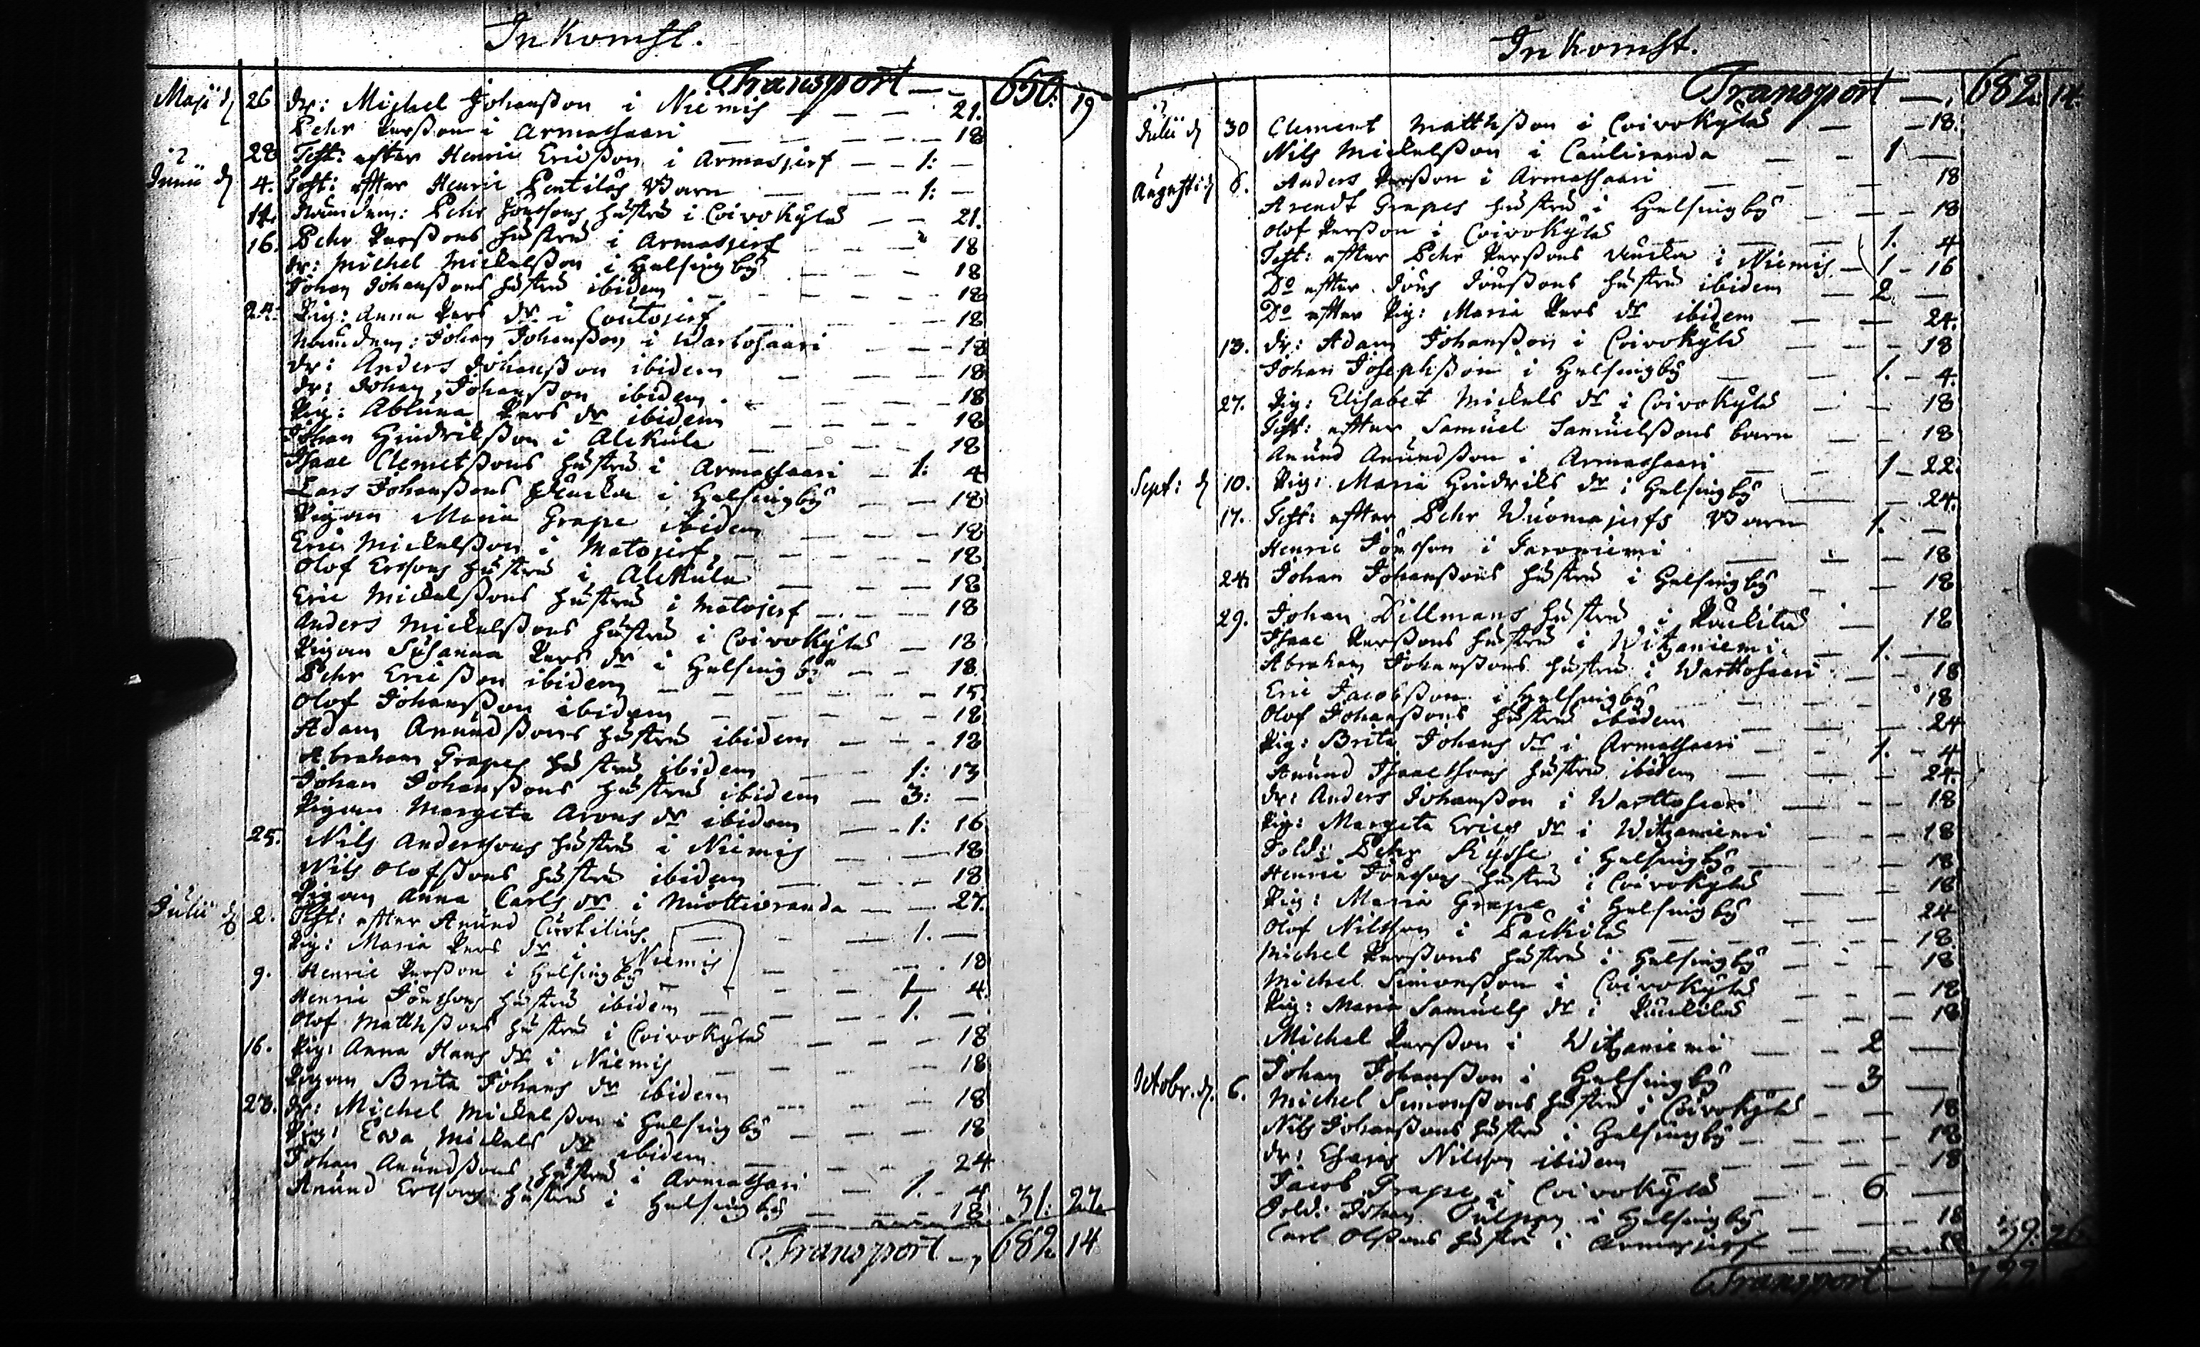 Inkomst.
Transport — 650: 19
Maji d 26 dr: Michel Johansson i Niemis — — — 21.
Pehr Persson i Armassaari — — — 18
28 Test: efter Henric Ericsson i Armasjerf — 1: —
Junii d 4. Test: efter Henric Pentilas Barn — — 1: —
14. Pehr Jönssons hustru i Coivokylä — — 21.
16. Pehr Perssons hustru i Armasjerf — 18
dr: Michel Mickelsson i Helsingby — — — 18
Johan Johanssons hustru ibidem — — — 18
24. Pig: Anna Pers dr i — — — 18
Johan Johansson i Wartosaari — — 18
dr: Anders Johansson ibidem — — — 18
dr: Johan Johansson ibidem — — — 18
Pig: Abluna Pers dr ibidem — — — 18
Johan Hindriksson i Alekula — — — 18
Isaac Clemetssons hustru i Armassaari — 1: 4
Lars Johanssons i Helsingby — — 18
Pigan Maria Grape ibidem — — — 18
Eric Mickelsson i Matojerf — — — 18
Olof Ersons hustru i Alekula — — — 18
Eric Mickelssons hustru i Matojerf — — — 18
Anders Mickelssons hustru i Coivokylä — 18
Pigan Susanna Pers dr i Helsingby — — 18
Pehr Ericsson ibidem — — — 15
Olof Johansson ibidem — — — 18
Adam Anundssons hustru ibidem — — — 18
Abraham Grapes hustru ibidem — — 1: 13
Johan Johanssons hustru ibidem — 3: —
Pigan Margeta Arons dr ibidem — 1: 16
25. Nils Anderssons hustru i Niemis — — 18
Nils Olofssons hustru ibidem — — — 18
Pigan Anna Carls dr i Muottioranda — — 27.
Julii d 2. Test: efter Anund — 1. —
Pig: Maria Pers dr i Niemis — — — 18
9. Henric Persson i Helsingby — — 1 4
Henric Jönssons hustru ibidem — — 1. —
Olof Matthssons hustru i Coivokylä — — — 18
16. Pig: Anna Hans dr i Niemis — — — 18
Pigan Brita Johans dr ibidem — — — 18
23. dr: Michel Mickelsson i Helsingby — — — 18
Pig: Eva Mickels dr ibidem — — — 24
Johan Anundssons hustru i Armassaari — 1. 4
Anund Ersons hustru i Helsingby — — 18 31: 27.
Transport —, 682 14
Inkomst.
Transport —, 682. 14.
Julii d 30 Clement Matthsson i Coivokylä — — 18.
Nils Mickelsson i Cauliranda — — 1 —
Augusti d 6. Anders Persson i Armassaari — — 18
Arendt Grapes hustru i Helsingby — — — 18
Olof Persson i Coivokylä — — 1. 4
Test: efter Pehr Perssons i Niemis — 1 — 16
Do efter Jöns Jönssons hustru ibidem — 2 —
Do efter Pig: Maria Pers dr ibidem — — 24.
13. dr: Adam Johansson i Coivokylä — — 18
Johan Josephsson i Helsingby — 1. — 4.
27. Pig: Elisabet Mickels dr i Coivokylä — — 18
Test: efter Samuel Samuelssons barn — — 18
Anund Anundsson i Armassaari — 1 — 22.
Sept: d 10. Pig: Maria Hindriks dr i Helsingby — — 24.
17. Test: efter Pehr Wuomajerfs Barn — 1. —
Henric Jönsson i Jaroniemi — — — 18
24. Johan Johanssons hustru i Helsingby — — 18
29. Johan Dillmans hustru i Päckilä — 18
Isaac Perssons hustru i Witzaniemi — 1. —
Abraham Johanssons hustru i Warttosaari — — 18
Eric Jacobsson i Helsingby — — 18
Olof Johanssons hustru ibidem — — 24
Pig: Brita Johans dr i Armassaari — 1. — 4
Anund Isaacssons hustru ibidem — — 24.
dr: Anders Johansson i Warttosaari — — 18
Pig: Margeta Erics dr i Witzaniemi — — 18
Sold: Pehr i Helsingby — — 18
Henric Jönssons hustru i Coivokylä — — 18
Pig: Maria Grape i Helsingby — — 24
Olof Nilsson i Päckilä — — 18
Michel Perssons hustru i Helsingby — — — 18
Michel Simonsson i Coivokylä — — — 18
Pig: Maria Samuels dr i Päckilä — — 18
Michel Persson i Witzaniemi — — 2 —
Octobr. d. 6. Johan Johansson i Helsingby — — 3 —
Michel Simonssons hustru i Coivokylä — — 18
Nils Johanssons hustru i Helsingby — — — 18
dr: Nilsson ibidem — — — 18
Jacob Grape i Coivokylä — — 6 —
Sold: Johan i Helsingby — — — 18
Carl Olssons hustru i Armasjerf — — 18 39: 26
Transport — 722